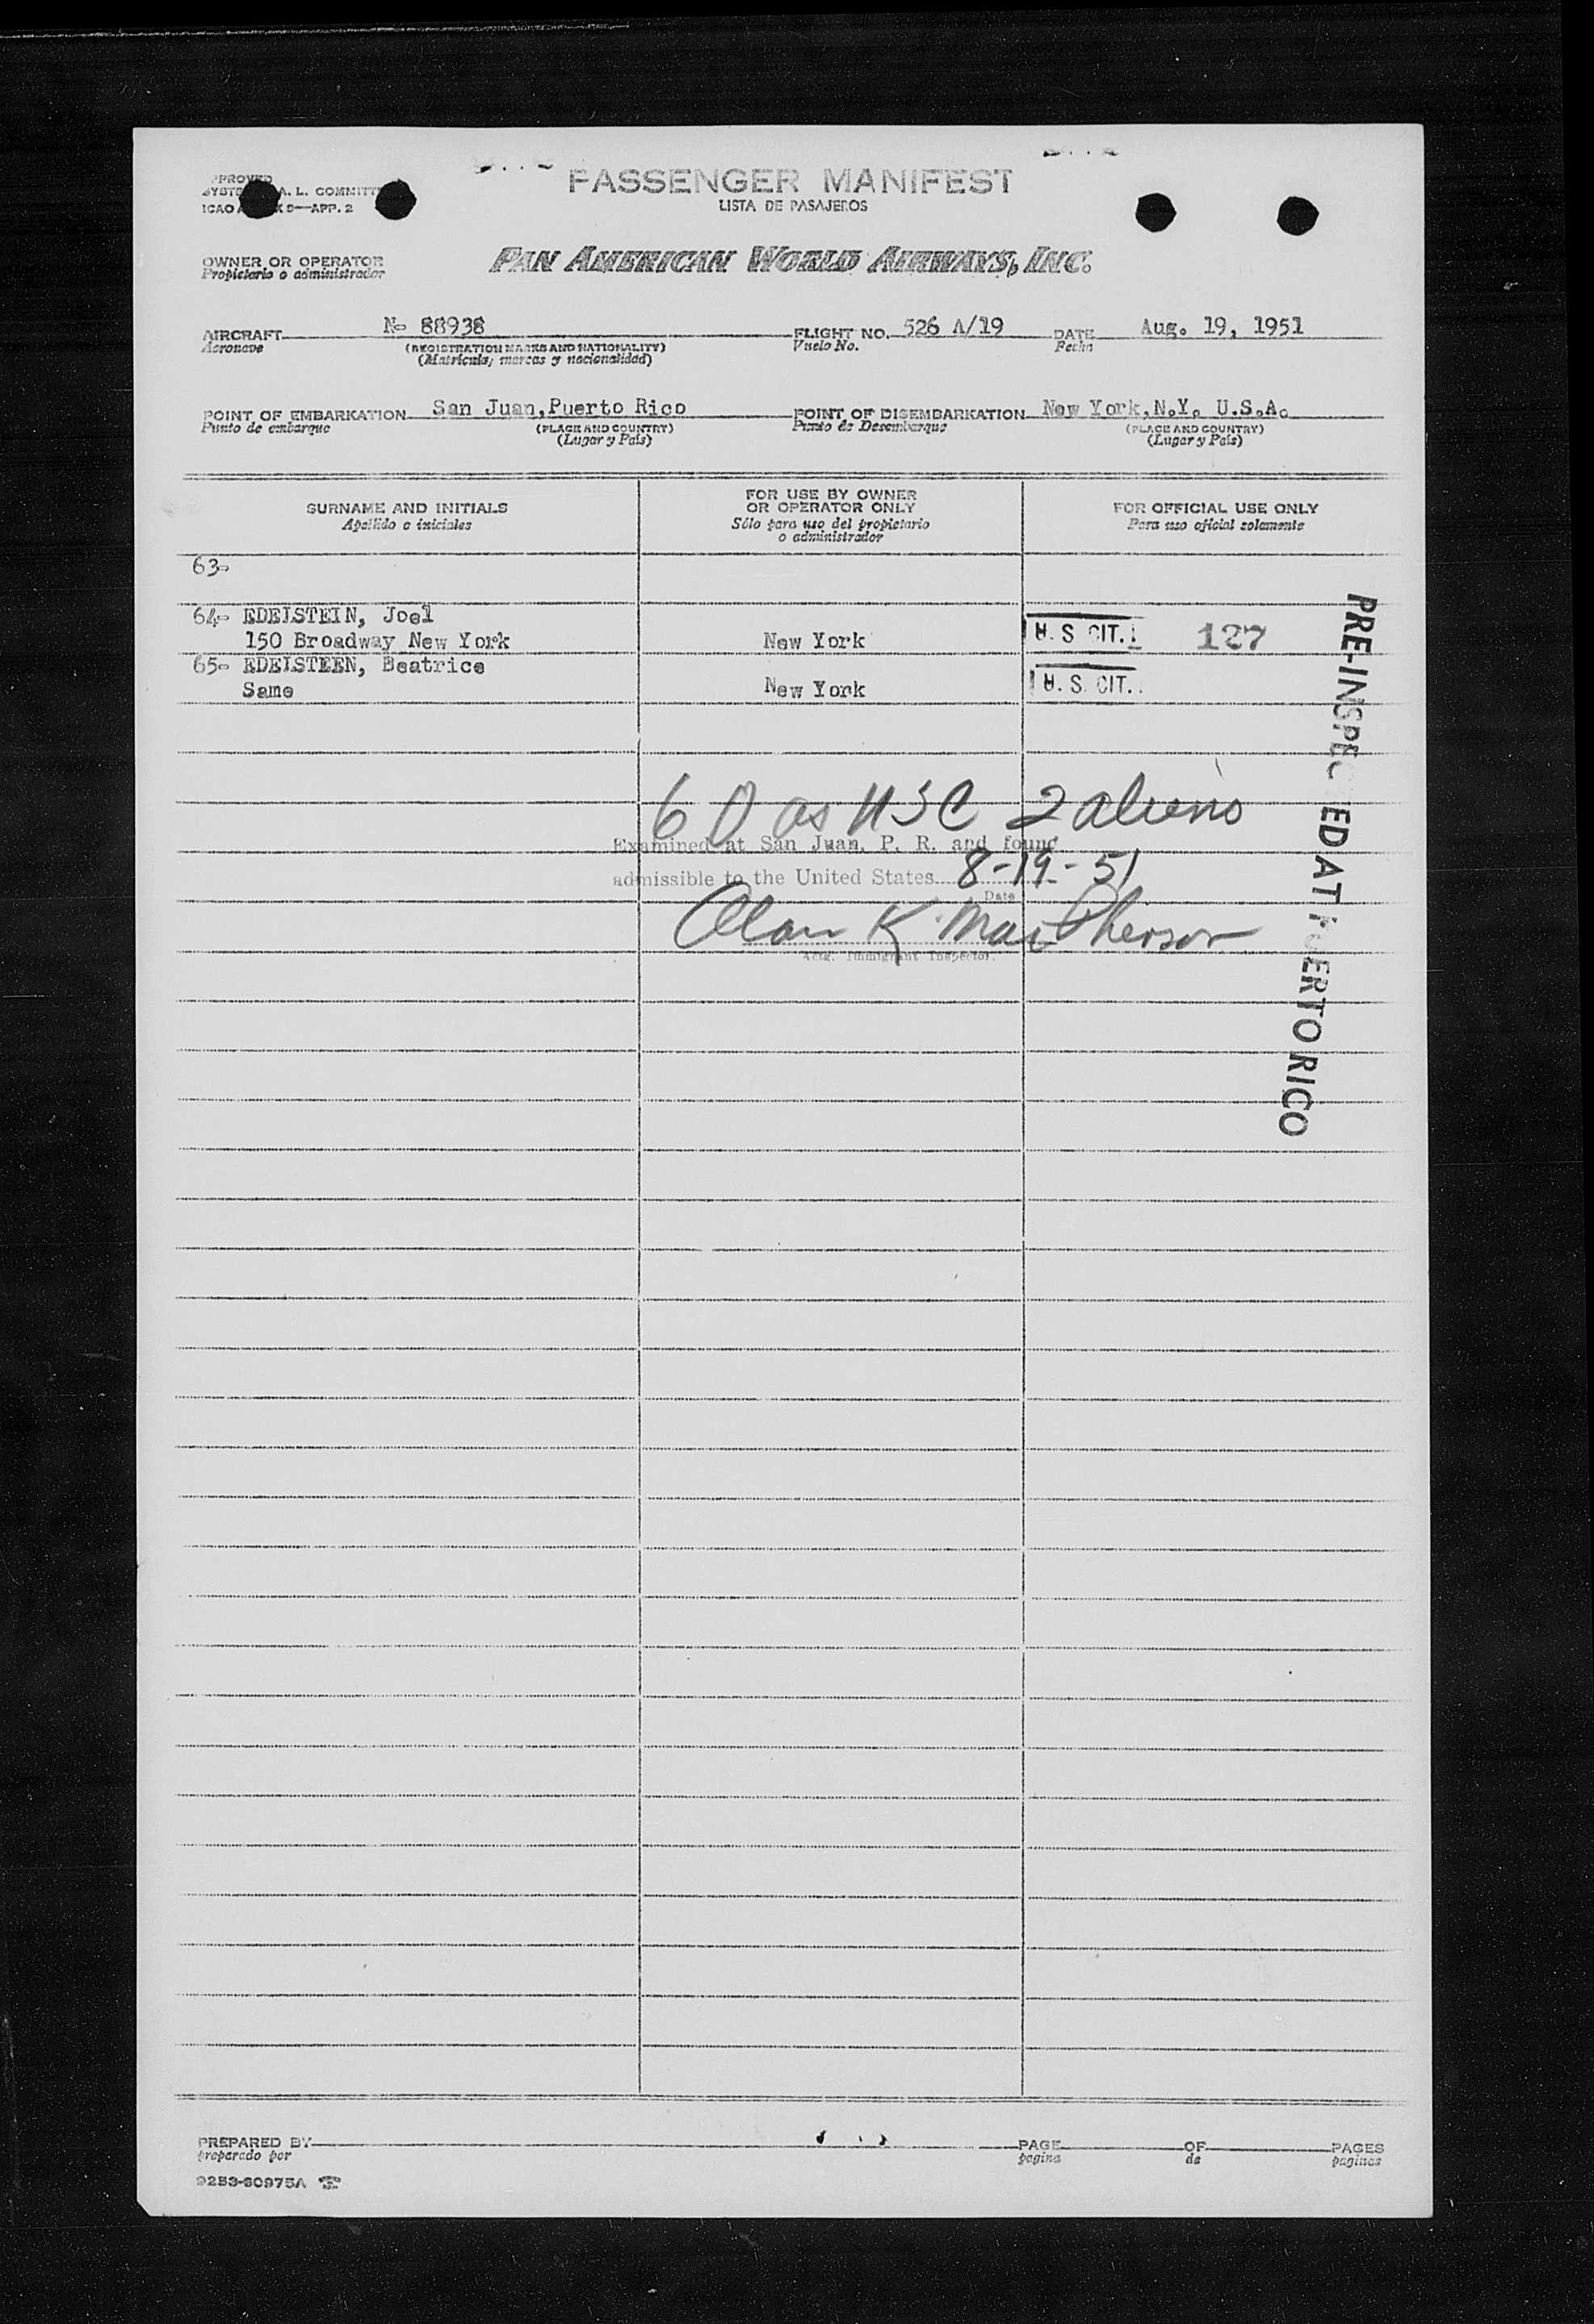 PASSENGER MANIFEST
LISTA DE PASAJEROS
A. L. COMMITT
ICAO
APP. 2
OWNER OR OPERATOR
Propietario o administrador
PAN AMERICAN WORLD AIRWAYS, INC.
AIRCRAFT N- 88938 FLIGHT NO. 526 A/19 DATE Aug. 19, 1951
Aeronave (REGISTRATION MARKS AND NATIONALITY) Vuelo No. Fecha
(Matrícula, marcas y nacionalidad)
POINT OF EMBARKATION San Juan,Puerto Rico POINT OF DISEMBARKATION New York,N.Y. U.S.A.
Punto de embarque (PLACE AND COUNTRY) Punto de Desembarque (PLACE AND COUNTRY)
(Lugar y País) (Lugar y País)
SURNAME AND INITIALS
Apellido e iniciales
FOR USE BY OWNER
OR OPERATOR ONLY
Sólo para uso del propietario
o administrador
FOR OFFICIAL USE ONLY
Para uso oficial solamente
63-
64- EDELSTEIN, Joel
150 Broadway New York New York U. S. CIT. 127
65- EDELSTEEN, Beatrice
Same New York U. S. CIT.
PRE-INSPEC ED AT P ERTO RICO
6 as USC 2 aliens
Examined at San Juan, P. R. and found
admissible to the United States 8-19-51
Date
Alan K. MacPherson
Actg. Immigrant Inspector.
PREPARED BY PAGE OF PAGES
preparado por pagina de paginas
9253-60975A